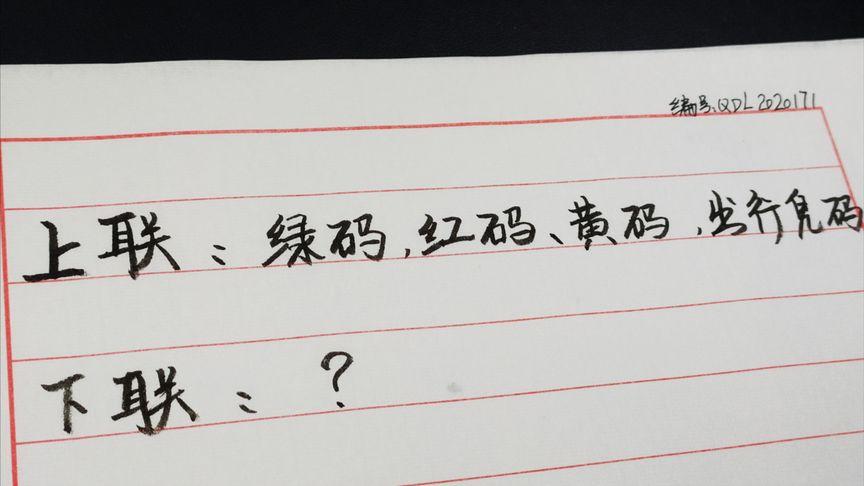 编号:QDL2020171
上联:绿码,红码、黄码,出行凭码
下联:?